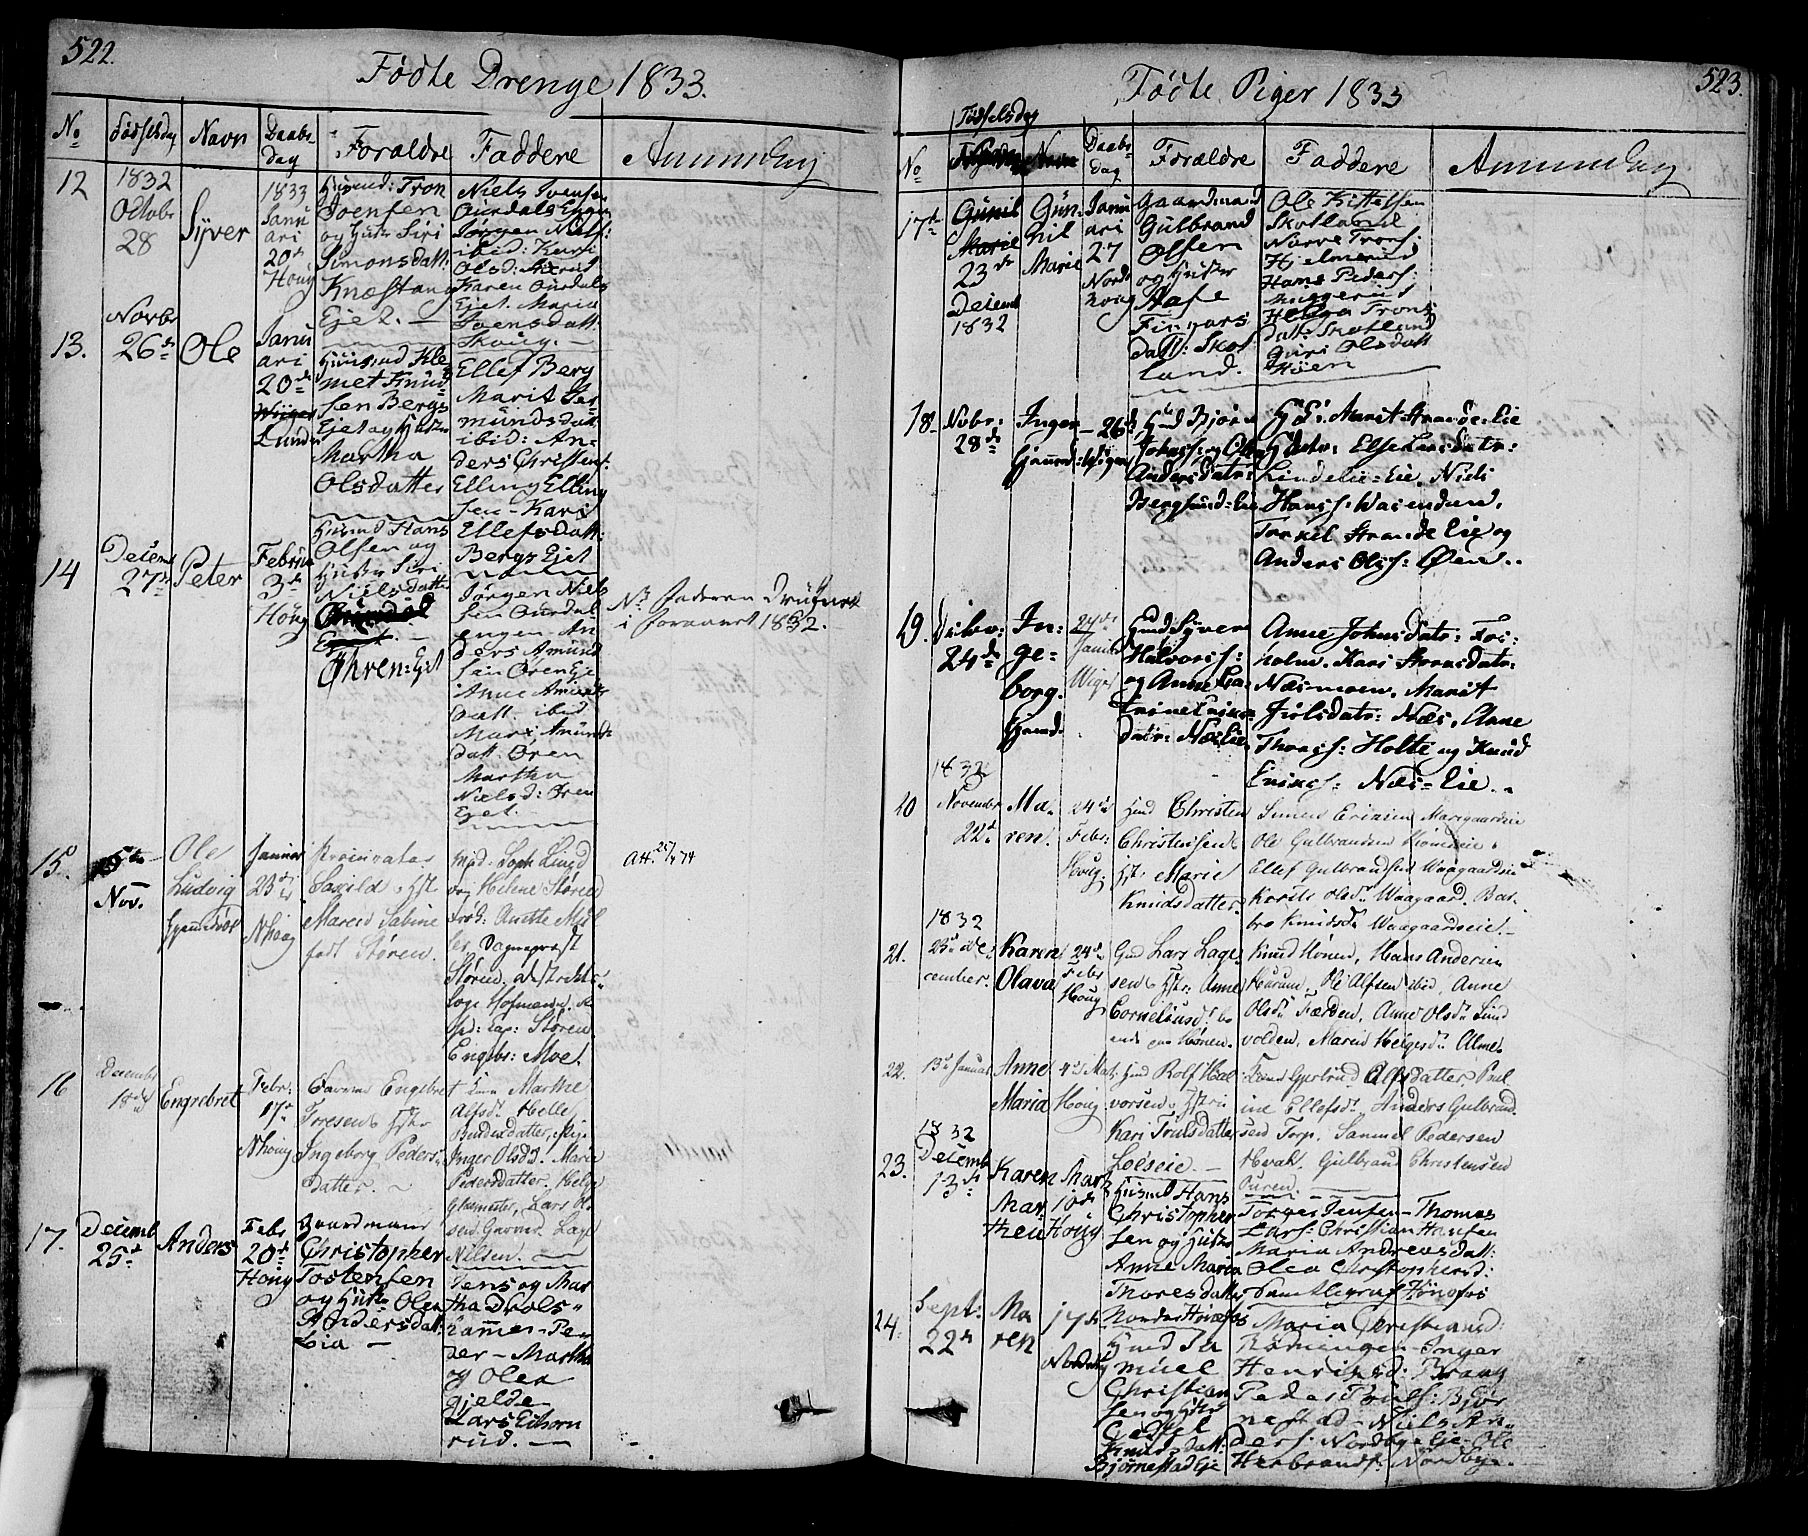 522.
Fødte Drenge 1833.
No
Fødselsdag
Navn
Daabs-
dag
Forældre
Faddere
Anmærkng
12
1832
Octobr
28
Syver
1833
Janu
ari
20de
Houg
Huusmd: Tron
Svensen
og Hustr Siri
Simonsdatt:
Knæstang
Ejet. —
Niels Svensen
Ourdals Engen
Jørgen Niels:
ibid: Kari
Olsd:
Karen Ourdals
Ejet. Maria
Svensdatt:
Houg. —
13.
Novbr
26de
Ole
Janu
ari
20de
Lunder
Huusmd Kle
met Knud
sen Bergs
Ejet og Hustr
Martha
Olsdatter
Ellef Berg
Marit
mundsdatt
ibid: An-
ders Christens:
Elling Elling
sen - Kari
Ellefsdatt:
Bergs Ejet
14
Decemb
27de
Peter
Februar
3de
Houg
Huusmd Hans
Olsen og
Hustr Siri
Nielsdatter
Ejet —
Øhren: Ejet
Jørgen Niels
sen Ourdal
engen An
ders Amund
sen Øren Eje
Anne Amunds
datt. ibid
Mari Amunds
datt. Øren
Martha
Nielsd: Øren
Ejet.
NB Faderen Druknet
i Foraaret 1832.
15.
5te
Nov.
Ole
Ludvig
Hjemmedøbt
Januar
23de
NHoug
Procurator
Saxild & Hst
Maren Sabine
født Støren.
Md. Soph: Lund
og Helene Støren
Frøk: Anette Møl
ler,
Støren, Distrikts-
læge Hofmann,
Cap: Støren
Engebr: Moe.
Att. 26/4 74
16
Decembr
18de
Engebret
Febr.
17de
NHoug
Gaardmd Engebret
Toresen & Hstr
Ingeborg Peders-
datter. —
Marthe
Alfsdr Helle
Berthe datter,
Inger Olsdr. Marie
Pedersdatter, Helge
Glasmester, Lars Ol
sen Lage
Nilsen. —
17.
Decemb
25de
Anders
Febr
20de
Houg
Gaardmand
Christopher
Tostensen
og Hustr Olea
Andersdatt:
Lia —
Jens og Mar
tha Drols-
hammer - Pe-
der - Martha
og Olea
Gjelde
Lars Eihorn
rud. —
523.
Fødte Piger 1833
Fødselsdag
No
Navn
Daabs-
dag
Forældre
Faddere
Anmærkng
17de
Gunil
Marie
23de
Decemb
1832
Gun-
hil
Marie
Janu
ari
27
Nord
houg
Gaardmand
Gulbrand
Olsen
og Hustr
Aase
Fingars
datt: Skot
land.
Ole Kittelsen
Skotland
Narve Trons:
Hjelmerud
Hans Peders:
Muggerud
Helga Trons
datt: Skotland
Guri Olsdatt
Høen
18
Novbr:
28de
Inger
Hjemmed:
— 26de
Wigern
Hmd Bjørn
Johnss: og Olea
Andersdatr:
Bergsund-Eie
Marit Strande-Eie
Else Larsdatr:
Lindelie-Eie, Niels
Hanss: Warenden,
Torkil Strande Eie og
Anders Olss: Øen..
19.
Decbr:
24de
In-
ge-
borg.
Hjemd.
27de
Januar
Wiger
Hmd Syver
Halvorss:
og Anne Ca-
trine Eriks
datr: Næs Eie
Anne Johnsdatr: Fos-
holm. Kari Arnesdatr:
Næsmoen, Marit
Joelsdatr: Næs, Anne
Thorss: Holte og Knud
Erikss: Næs-Eie..
20
1832
November
22de
Ma-
ren.
24de
Febr:
Houg.
Hmd Christen
Christensen
Hstr Marie
Knudsdatter.
Simen Eriksen Waagaardseie
Ole Gulbrandsen Hønseeie.
Ellef Gulbrandsen Waagaardseie
Karite Olsdr Waagaard. Bar-
bro Knudsdr Waagaardseie.—
21.
1832
23de De-
cember.
Karen
Olava
24de
Febr
Houg
Hmd Lars Lage-
sen & Hstr. Anne
Corneliusdr. bo
ende paa Hønen.
Knud Hønen, Hans Andersen
Hurum, Ole Alfsen ibid, Anne
Olsdr Færden, Anne Olsdr Lund
volden, Maren Helgesdr Alme.
22.
13de Januar
Anne
Maria
4de Mai
Houg
Hmd Rolf Hal
vorsen & Hstru
Kari Trulsdatter
Loeseie. —
Gjertrud Alfsdatter. Paul
ine Ellefsdr. Anders Gulbrand-
sen Torp. Samuel Pedersen
Hval. Gulbrand Christensen
Buren. —
23.
1832
Decemb
13de
Karen
Mar-
then
Marts
10de
Houg
Huusmd Hans
Christopher
sen og Hustr
Anne Maria
Thoresdatter
Nordre Hønefos
Torger Jensen - Thomas
Lars: Christian Hansen
Maria Andreasdatt:
Olea Christophersd:
Samtlige af Hønefos
24.
Sept.
22de
Ma
ren
17de
Nordhoug
Huusmd Sa
muel
Christian
sen og Hustr
Knudsdatt:
Bjørnestad Eje
Maria Christiansd:
Ramengen - Inger
Henriksd: Braag
Peder Truls: Bjør
nestad - Niels An-
ders: Nordby Eje - Ole
Herbrands: Nordbye.